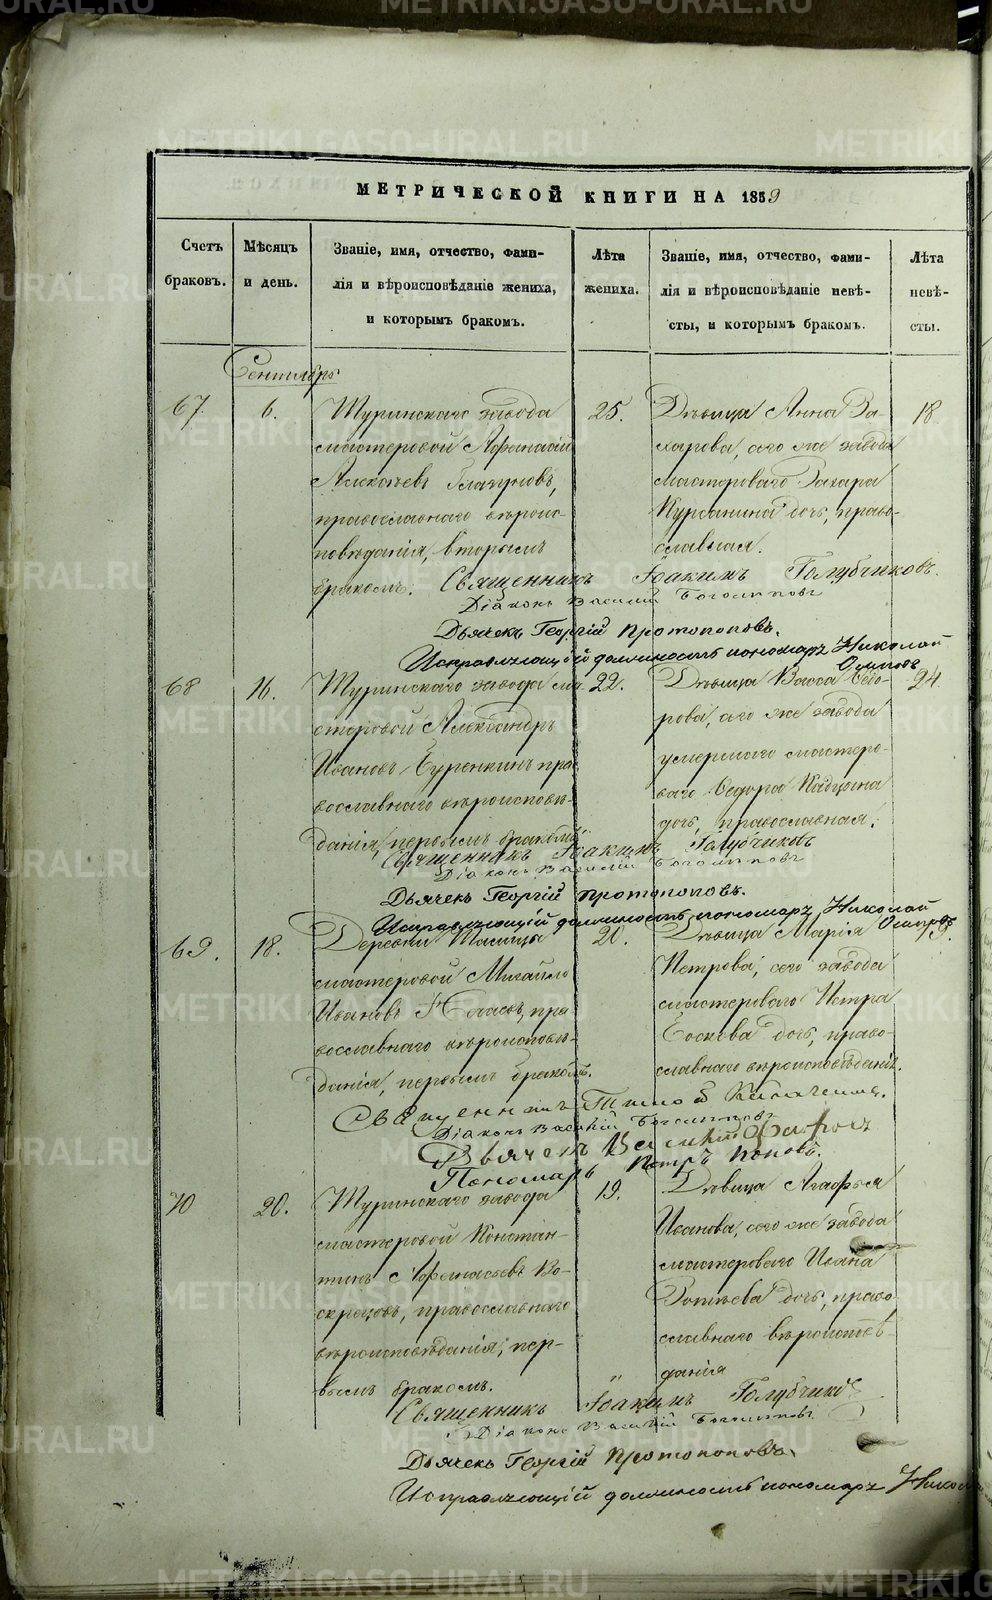 МЕТРИЧЕСКОЙ КНИГИ НА 1859
Счетъ браковъ.
Мѣсяцъ и день.
Званіе, имя, отчество, фами-
лія и вѣроисповѣданіе жениха,
и которымъ бракомъ.
Лѣта жениха.
Званіе, имя, отчество, фами-
лія и вѣроисповѣданіе невѣ-
сты, и которымъ бракомъ.
Лѣта невѣ-
сты.
Сентябрь
67.
6.
Туринскаго завода
мастеровой Афанасій
Алексѣевъ
православнаго вѣроис-
повѣданія, вторымъ
бракомъ.
25.
Дѣвица Анна За-
харова, сего же завода
мастероваго Захара
дочь, право-
славная.
18.
Священникъ Іоакимъ Голубчиковъ.
Діаконъ Василій
Дьячекъ Георгій Протопоповъ.
Исправляющій должность пономаря Николай
Осиповъ
68
16.
Туринскаго завода ма-
стеровой Александръ
Ивановъ пра-
вославнаго вѣроисповѣ-
данія, первымъ бракомъ.
22.
Дѣвица Васса Ѳедо-
рова, сего же завода
умершаго мастеро-
ваго Ѳедора
дочь, православная.
24.
Священникъ Іоакимъ Голубчиковъ
Діаконъ Василій
Дьячекъ Георгій Протопоповъ.
Исправляющій должность пономаря Николай
Осиповъ.
69.
18.
Деревни
мастеровой Михайло
Ивановъ пра-
вославнаго вѣроисповѣ-
данія, первымъ бракомъ.
20.
Дѣвица Марія
Петрова, сего завода
мастероваго Петра
дочь, право-
славнаго вѣроисповѣданія.
Священникъ
Діаконъ Василій
Дьячекъ
Пономарь Петръ Поповъ.
70
20.
Туринскаго завода
мастеровой Констан-
тинъ Афанасьевъ Во-
скрецовъ, православнаго
вѣроисповѣданія, пер-
вымъ бракомъ.
19.
Дѣвица Агафья
Иванова, сего же завода
мастероваго Ивана
дочь, право-
славнаго вѣроисповѣ-
данія
Священникъ Іоакимъ Голубчиковъ
Діаконъ Василій
Дьячекъ Георгій Протопоповъ.
Исправляющій должность пономаря
METRIKI.GASO-URAL.RU